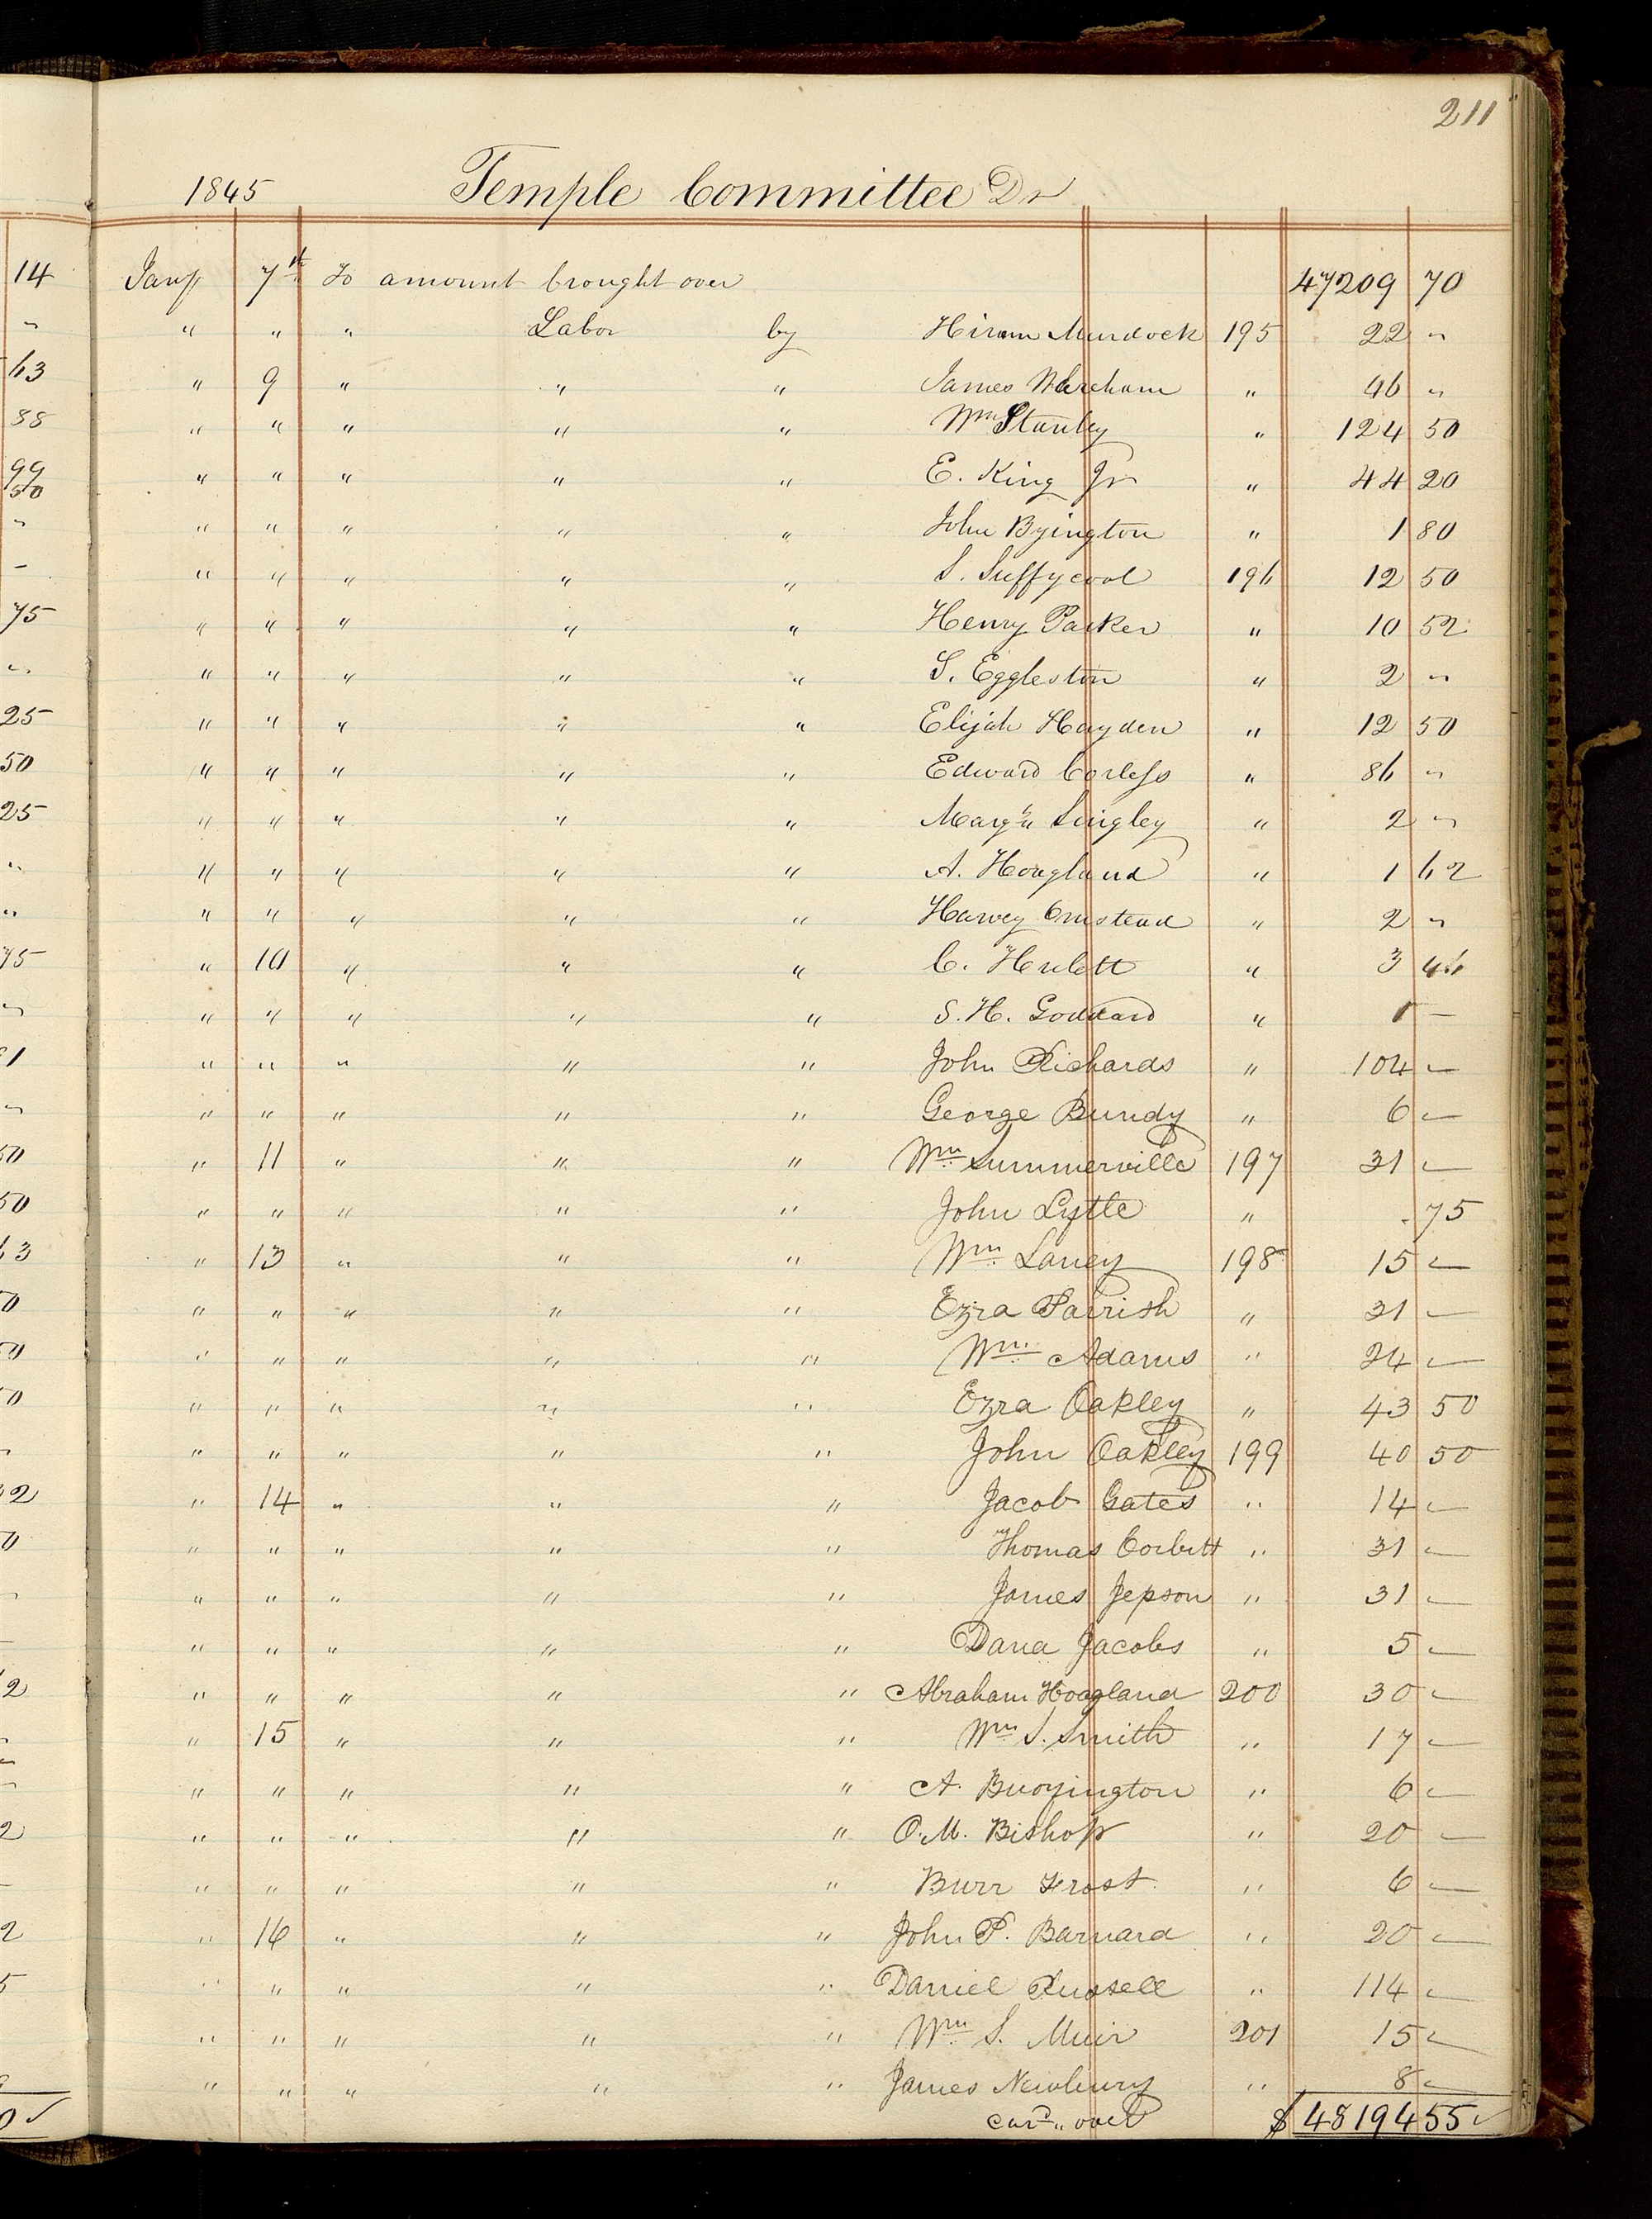 211
1845 Temple Committee Dr
14 Jany 7th To amount brought over 47209 70
" " " " Labor by Hiram Murdock 195 22 "
63 " 9 " " " James Wareham " 46 "
88 " " " " " Wm Stanley " 124 50
99 " " " " " E. King Jr " 44 20
50
" " " " " " John Byington " 1 80
- " " " " " S. Suffycool 196 12 50
75 " " " " " Henry Parker " 10 52
" " " " " " S. Eggleston " 2 "
25 " " " " " Elijah Hayden " 12 50
50 " " " " " Edward Corless " 86 "
25 " " " " " Margt Lingley " 2 "
" " " " " " A. Hoagland " 1 62
" " " " " " Harvey Omstead " 2 "
75 " 10 " " " C. Hulett " 3 46
" " " " " " S. H. Goddard " 1 -
1 " " " " " John Richards " 104 -
" " " " " " George Bundy " 6 -
50 " 11 " " " Wm Summerville 197 31 -
50 " " " " " John Lytle " . 75
63 " 13 " " " Wm Laney 198 15 -
0 " " " " " Ezra Parrish " 31 -
0 " " " " " Wm Adams " 24 -
0 " " " " " Ezra Oakley " 43 50
" " " " " " John Oakley 199 40 50
2 " 14 " " " Jacob Gates " 14 -
0 " " " " " Thomas Corbitt " 31 -
" " " " " " James Jepson " 31 -
- " " " " " Dana Jacobs " 5 -
2 " " " " " Abraham Hoagland 200 30 -
" " 15 " " " Wm S. Smith " 17 -
" " " " " " A. Buoyington " 6 -
2 " " " " " O. M. Bishop " 20 -
- " " " " " Burr Frost " 6 -
2 " 16 " " " John P. Barnard " 20 -
5 " " " " " Daniel Russell " 114 -
" " " " " Wm S. Muir 201 15 -
" " " " " James Newbury " 8 -
0 ✓ card over $ 48194 55 ✓